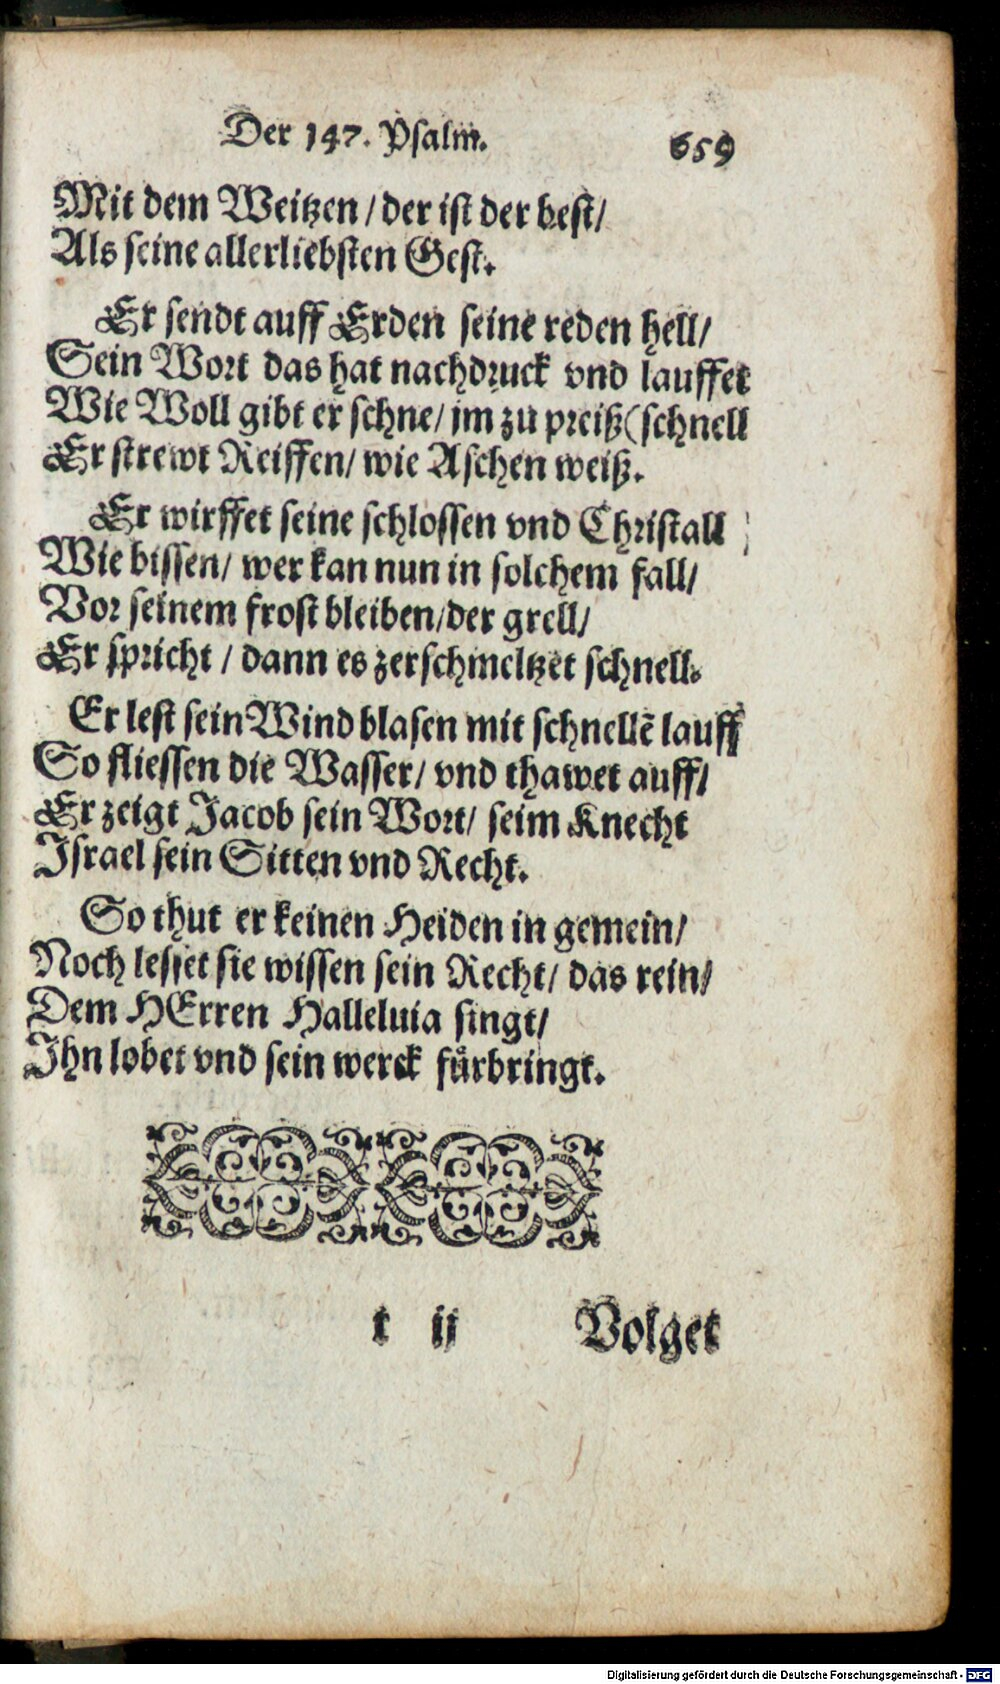 Der 147. Psalm. 659
Mit dem Weitzen / der ist der best /
Als seine allerliebsten Gest.
Er sendt auff Erden seine reden hell /
Sein Wort das hat nachdruck vnd lauffet
Wie Woll gibt er schne / jm zu preiß (schnell
Er strewt Reiffen / wie Aschen weiß.
Er wirffet seine schlossen vnd Christall
Wie bissen / wer kan nun in solchem fall /
Vor seinem frost bleiben / der grell /
Er spricht / dann es zerschmeltzet schnell.
Er lest sein Wind blasen mit schnellẽ lauff
So fliessen die Wasser / vnd thawet auff /
Er zeigt Jacob sein Wort / seim Knecht
Israel sein Sitten vnd Recht.
So thut er keinen Heiden in gemein /
Noch lesset sie wissen sein Recht / das rein /
Dem HErren Halleluia singt /
Ihn lobet vnd sein werck fürbringt.
t ij Volget
Digitalisierung gefördert durch die Deutsche Forschungsgemeinschaft - DFG